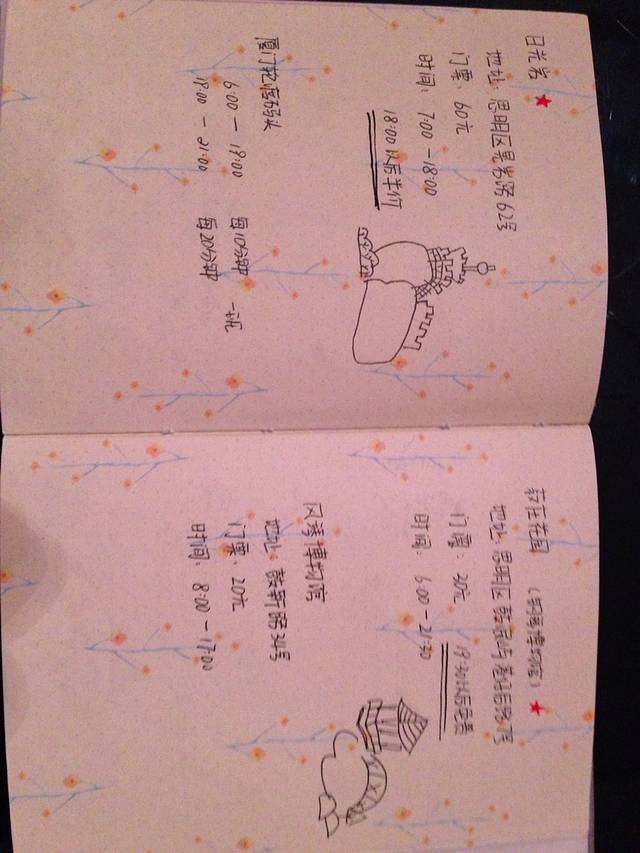 日光岩
地址: 思明区晃岩路62号
门票: 60元
时间: 7:00 - 18:00
18:00以后半价
厦门轮渡码头
6:00 - 19:00 每10分钟一班
19:00 - 21:00 每20分钟
菽庄花园 (钢琴博物馆)
地址: 思明区鼓浪屿港仔后路7号
门票: 30元
时间: 6:00 - 21:30
19:30以后免票
风琴博物馆
地址: 鼓新路34号
门票: 20元
时间: 8:00 - 17:00